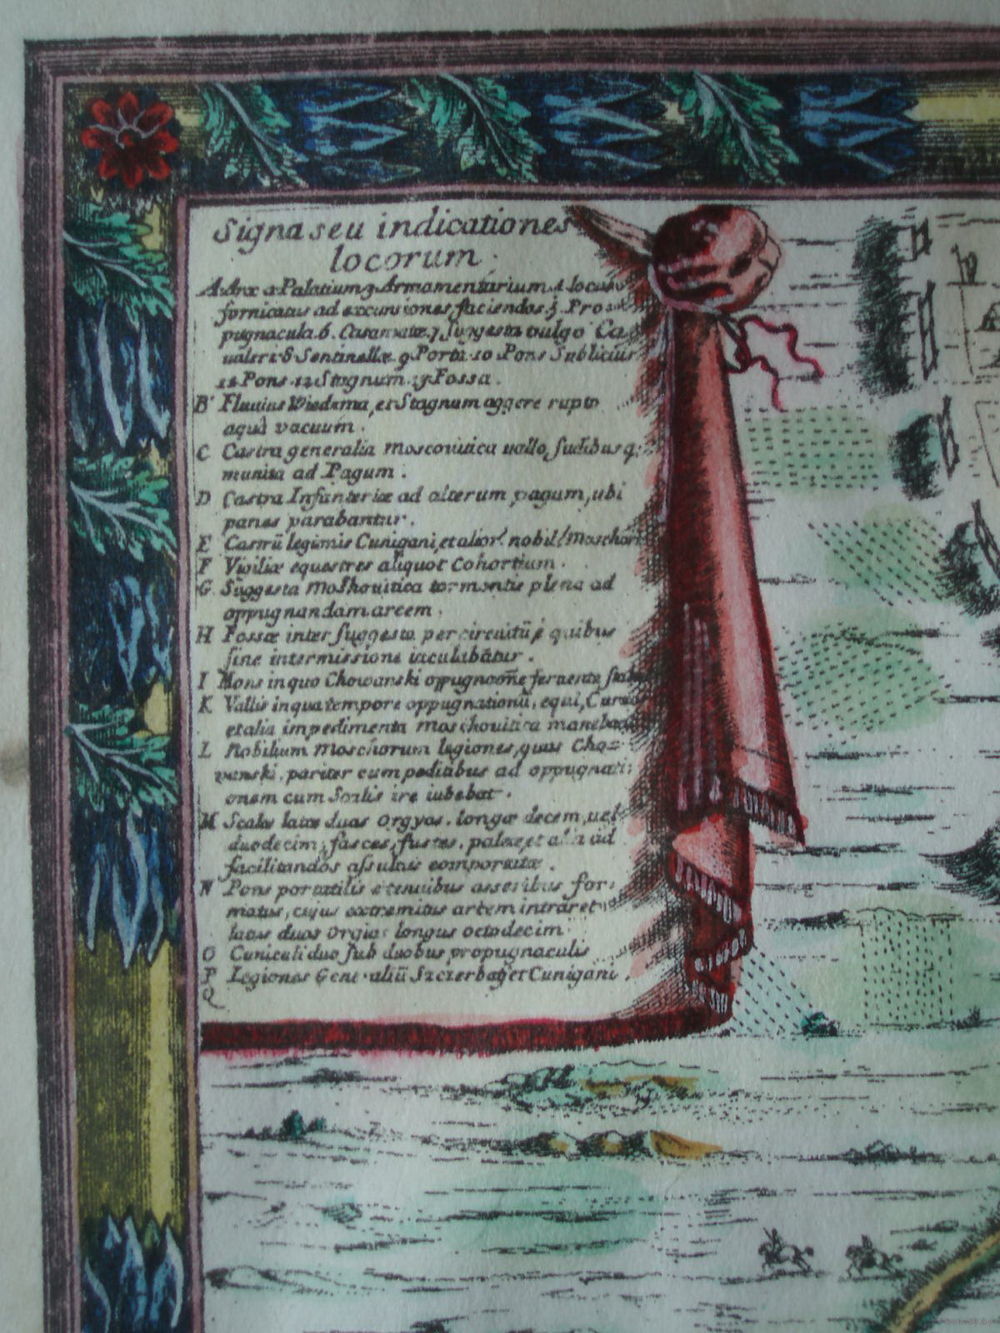 Signa seu indicationes
locorum.
A Arx 2 Palatium 3 Armamentarium 4 locus
fornicatus ad excursiones faciendos 5 Pro=
pugnacula. 6. Casamatæ. 7 Suggesta vulgo Ca=
valeri. 8 Sentinellæ. 9 Porta. 10 Pons Sublicius
11 Pons. 12 Stagnum. 13 Fossa.
B Fluvius Wiedzma, et Stagnum aggere rupto
aquâ vacuum.
C Castra generalia Moscovitica vallo, sudibusq;
munita ad Pagum.
D Castra Infanteriæ ad alterum pagum, ubi
panes parabantur.
E legionis Cunigani, et alior. nobil.
F Vigiliæ equestres aliquot Cohortium.
G Suggesta Moshovitica tormentis plena ad
oppugnandam arcem.
H Fossæ inter suggesta per circuitũ, è quibus
sine intermissione
I Mons in quo Chowanski ferventè
K Vallis in qua tempore oppugnationũ, equi,
et alia impedimenta Moschovitica
L Nobilium Moschorum legiones, quas Cho=
vanski, pariter cum peditibus ad oppugnati=
onem cum Scalis ire iubebat.
M Scalæ latæ duas orgyas, longæ decem, vel
duodecim; fasces, fustes, paleæ, et alia ad
facilitandos assultus comportatæ.
N Pons portatilis è tenuibus asseribus for=
matus, cujus extremitas arcem intraret
latus duas Orgias longus octodecim.
O Cuniculi duo sub duobus propugnaculis
P Legiones Szczerbaty et Cunigani.
Q